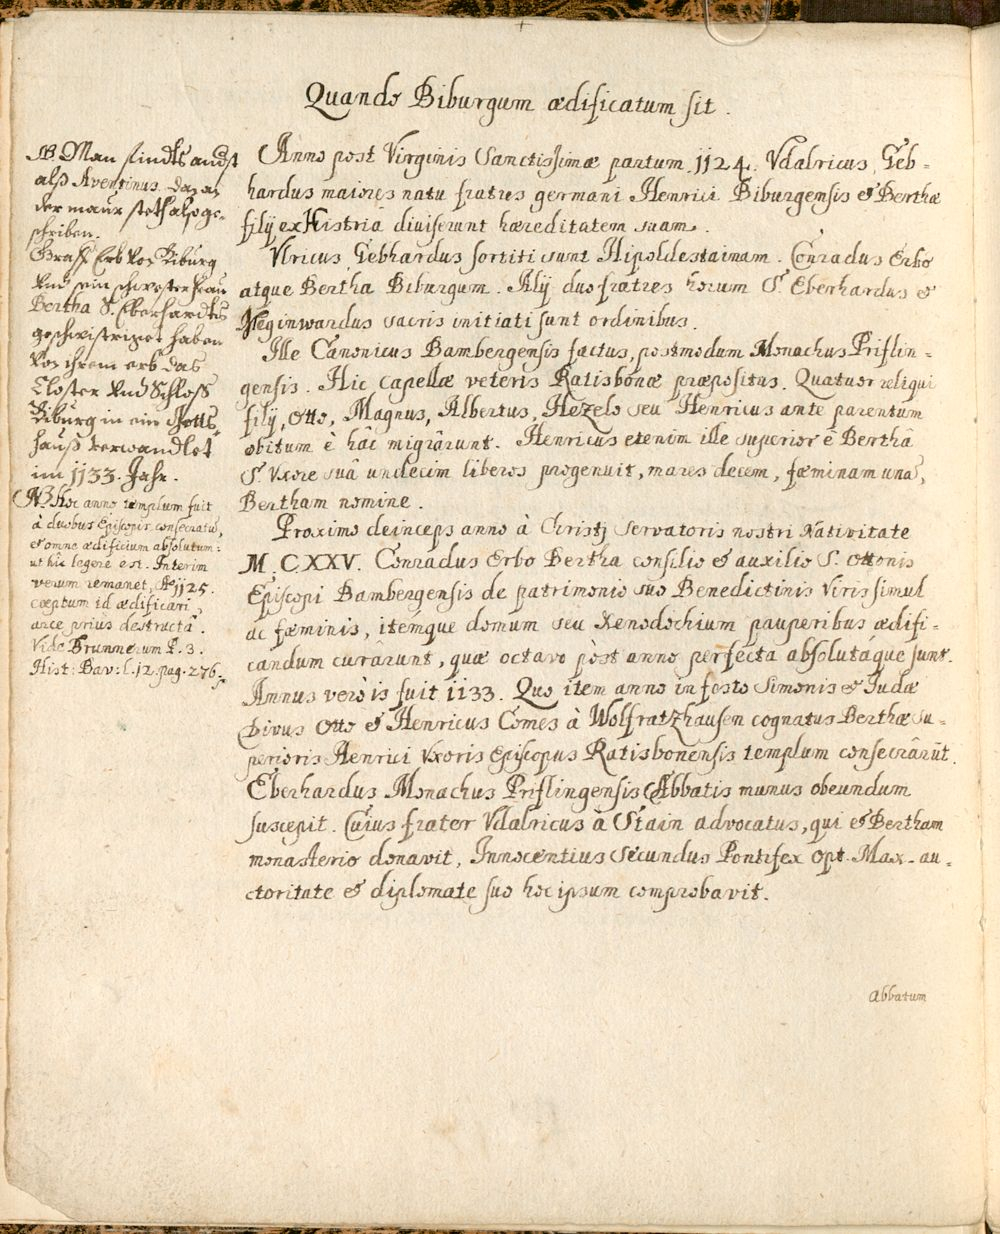 Quando Biburgum ædificatum sit.
Anno post Virginis Sanctissimæ partum 1124. Vdalricus, Geb-
hardus maiores natu fratres germani Henrici Biburgensis & Berthæ
filij ex Histria diuiserunt hæreditatem suam.
Vlricus, Gebhardus sortiti sunt Hipoldestainam. Conradus Erbo
atque Bertha Biburgum. Alij duo fratres horum S. Eberhardus &
Meginwardus sacris initiati sunt ordinibus.
Ille Canonicus Bambergensis factus, postmodum Monachus Priflin-
gensis. Hic capellæ veteris Ratisbonæ præpositus. Quatuor reliqui
filij, Otto, Magnus, Albertus, Hezelo seu Henricus ante parentum
obitum è hâc migrârunt. Henricus etenim ille superior è Berthâ
S. Vxore suâ undecim liberos progenuit, mares decem, fæminam una,
Bertham nomine.
Proximo deinceps anno à Christj servatoris nostri Nativitate
M.CXXV. Conradus Erbo Bertha consilio & auxilio S. Ottonis
Episcopi Bambergensis de patrimonio suo Benedictinis Viris simul
ac fæminis, itemque domum seu Xenodochium pauperibus ædifi-
candum curarunt, quæ octavo pòst anno perfecta absolutáque sunt.
Annus verò is fuit 1133. Quo item anno in festo Simonis & Judæ
Divus Otto & Henricus Comes à Wolfratzhausen cognatus Berthæ su-
perioris Henrici Vxoris Episcopus Ratisbonensis templum consecrârūt.
Eberhardus Monachus Priflingensis Abbatis munus obeundum
suscepit. Cuius frater Vdalricus à Stain advocatus, qui & Bertham
monasterio donavit, Innocentius Secundus Pontifex Opt. Max. au-
ctoritate & diplomate suo hoc ipsum comprobavit.
Abbatum
NB. Man findts auch
alß Aventinus, daz an
der maur steth also ge-
schriben.
Graff Erb von Biburg
vnd sein schwester Frau
Bertha S. Eberhardts
geschwistriget haben
von ihrem erb das
Closter vnd Schloss
Biburg in ein Gotts-
hauß verwandlet
im 1133. Jahr.
NB. Hoc anno templum fuit
à duobus Episcopis consecratū,
& omne ædificium absolutum:
ut hic legere est. Interim
verum remanet, Aº 1125.
cæptum id ædificari,
arce prius destructâ.
Vide Brunnerum P. 3.
Hist: Bav: l. 12. pag. 276.